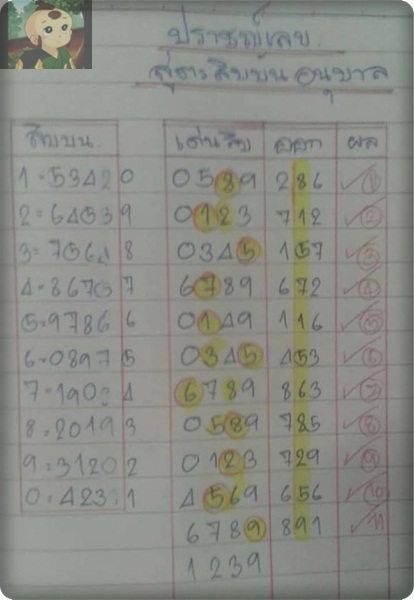 ปราชญ์เลข
สูตรสิบบน อนุบาล
สิบบน เด่นสิบ ออก ผล
1=53420 0589 286 ✓①
2=64539 0123 712 ✓②
3=75648 0345 157 ✓③
4=86757 6789 672 ✓④
5=97866 0149 116 ✓⑤
6=08975 0345 453 ✓⑥
7=190 4 6789 863 ✓⑦
8=20193 0589 785 ✓⑧
9=31202 0123 729 ✓⑨
0=423 1 4569 656 ✓⑩
6789 891 ✓11
1239